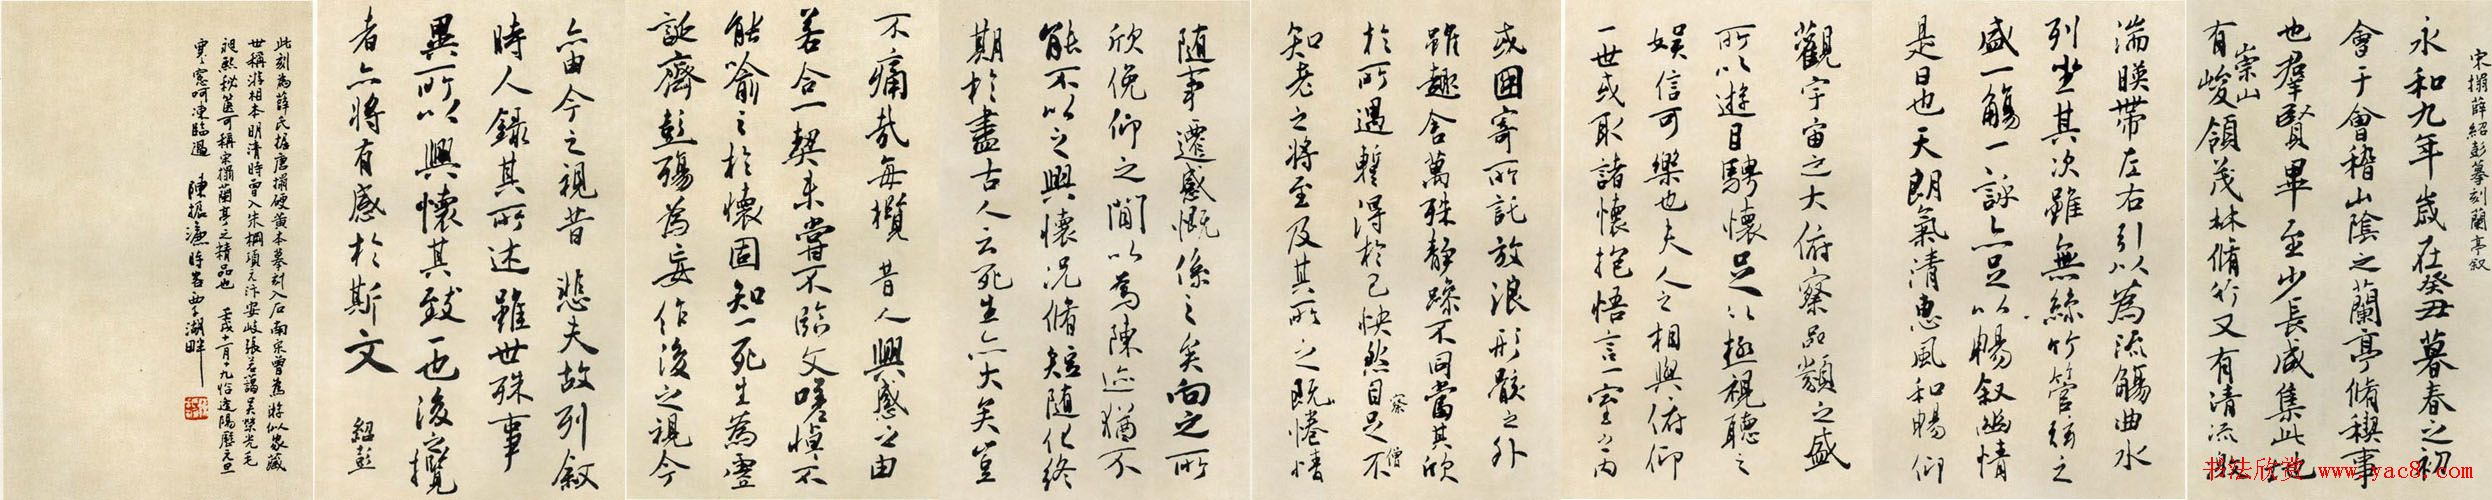 宋搨薛紹彭摹刻蘭亭叙
永和九年歲在癸丑暮春之初
會于會稽山陰之蘭亭脩稧事
也羣賢畢至少長咸集此地
崇山
有峻領茂林脩竹又有清流激
湍暎帶左右引以為流觴曲水
列坐其次雖無絲竹管弦之
盛一觴一詠亦足以暢叙幽情
是日也天朗氣清惠風和暢仰
觀宇宙之大俯察品類之盛
所以遊目騁懷足以極視聽之
娛信可樂也夫人之相與俯仰
一世或取諸懷抱悟言一室之內
或因寄所託放浪形骸之外
雖趣舍萬殊靜躁不同當其欣
於所遇暫得於己快然自足不
察 僧
知老之將至及其所之既惓情
隨事遷感慨係之矣向之所
欣俛仰之閒以為陳迹猶不
能不以之興懷况脩短隨化終
期於盡古人云死生亦大矣豈
不痛哉每攬昔人興感之由
若合一契未嘗不臨文嗟悼不
能喻之於懷固知一死生為虛
誕齊彭殤為妄作後之視今
亦由今之視昔悲夫故列敘
時人錄其所述雖世殊事
異所以興懷其致一也後之攬
者亦將有感於斯文
紹彭
此刻為薛氏據唐搨硬黃本摹刻入石南宋曾為游似家藏
世稱游相本明清時曾入朱棡項元汴安岐張若靄吳榮光毛
昶熙秘篋可稱宋搨蘭亭之精品也 壬戌十一月十九恰逢陽曆元旦
寒窓呵凍臨過 陳振濂時客西子湖畔
书法欣赏 www.yac8.com